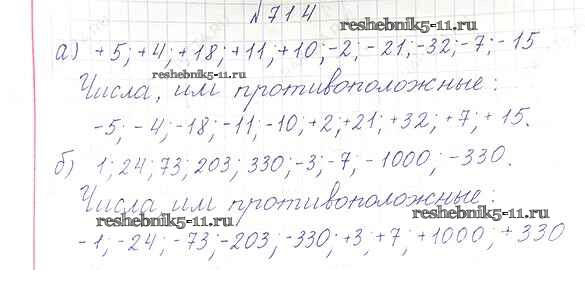 №714
reshebnik5-11.ru
а) +5; +4; +18; +11; +10; -2; -21; -32; -7; -15
reshebnik5-11.ru
Числа, им противоположные:
-5; -4; -18; -11; -10; +2; +21; +32; +7; +15.
б) 1; 24; 73; 203; 330; -3; -7; -1000; -330.
Числа им противоположные:
reshebnik5-11.ru
reshebnik5-11.ru
-1; -24; -73; -203; -330; +3; +7; +1000; +330